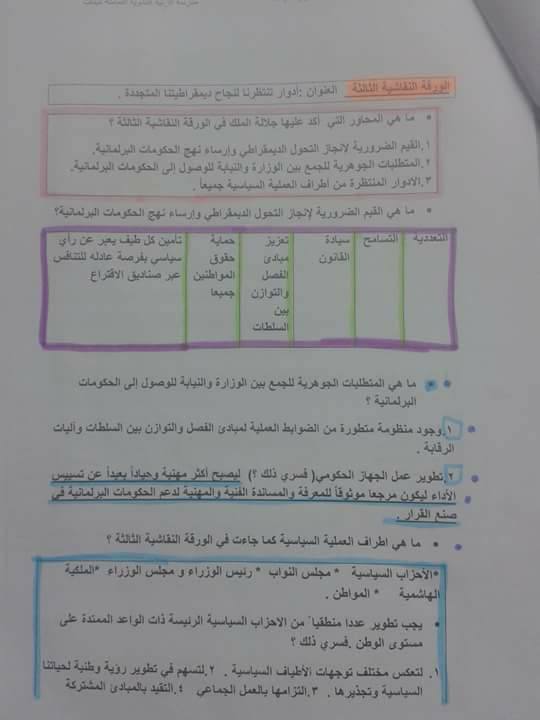 الورقة النقاشية الثالثة العنوان :أدوار تنتظرنا لنجاح ديمقراطيتنا المتجددة .
• ما هي المحاور التي أكد عليها جلالة الملك في الورقة النقاشية الثالثة ؟
١.القيم الضرورية لإنجاز التحول الديمقراطي وإرساء نهج الحكومات البرلمانية.
٢.المتطلبات الجوهرية للجمع بين الوزارة والنيابة للوصول إلى الحكومات البرلمانية.
٣.الادوار المنتظرة من اطراف العملية السياسية جميعاً .
• ما هي القيم الضرورية لإنجاز التحول الديمقراطي وإرساء نهج الحكومات البرلمانية؟
التعددية
التسامح
سيادة
القانون
تعزيز
مبادئ
الفصل
والتوازن
بين
السلطات
حماية
حقوق
المواطنين
جميعا
تأمين كل طيف يعبر عن رأي
سياسي بفرصة عادله للتنافس
عبر صناديق الاقتراع
• ما هي المتطلبات الجوهرية للجمع بين الوزارة والنيابة للوصول إلى الحكومات
البرلمانية ؟
١.وجود منظومة متطورة من الضوابط العملية لمبادئ الفصل والتوازن بين السلطات وآليات
الرقابة .
٢.تطوير عمل الجهاز الحكومي( فسري ذلك ؟) ليصبح أكثر مهنية وحياداً بعيداً عن تسييس
الأداء ليكون مرجعا موثوقاً للمعرفة والمساندة الفنية والمهنية لدعم الحكومات البرلمانية في
صنع القرار .
• ما هي اطراف العملية السياسية كما جاءت في الورقة النقاشية الثالثة ؟
*الأحزاب السياسية * مجلس النواب * رئيس الوزراء و مجلس الوزراء *الملكية
الهاشمية * المواطن .
• يجب تطوير عددا منطقيا من الاحزاب السياسية الرئيسة ذات القواعد الممتدة على
مستوى الوطن .فسري ذلك ؟
١. لتعكس مختلف توجهات الأطياف السياسية . ٢.لتسهم في تطوير رؤية وطنية لحياتنا
السياسية وتجذيرها . ٣.التزامها بالعمل الجماعي ٤.التقيد بالمبادئ المشتركة